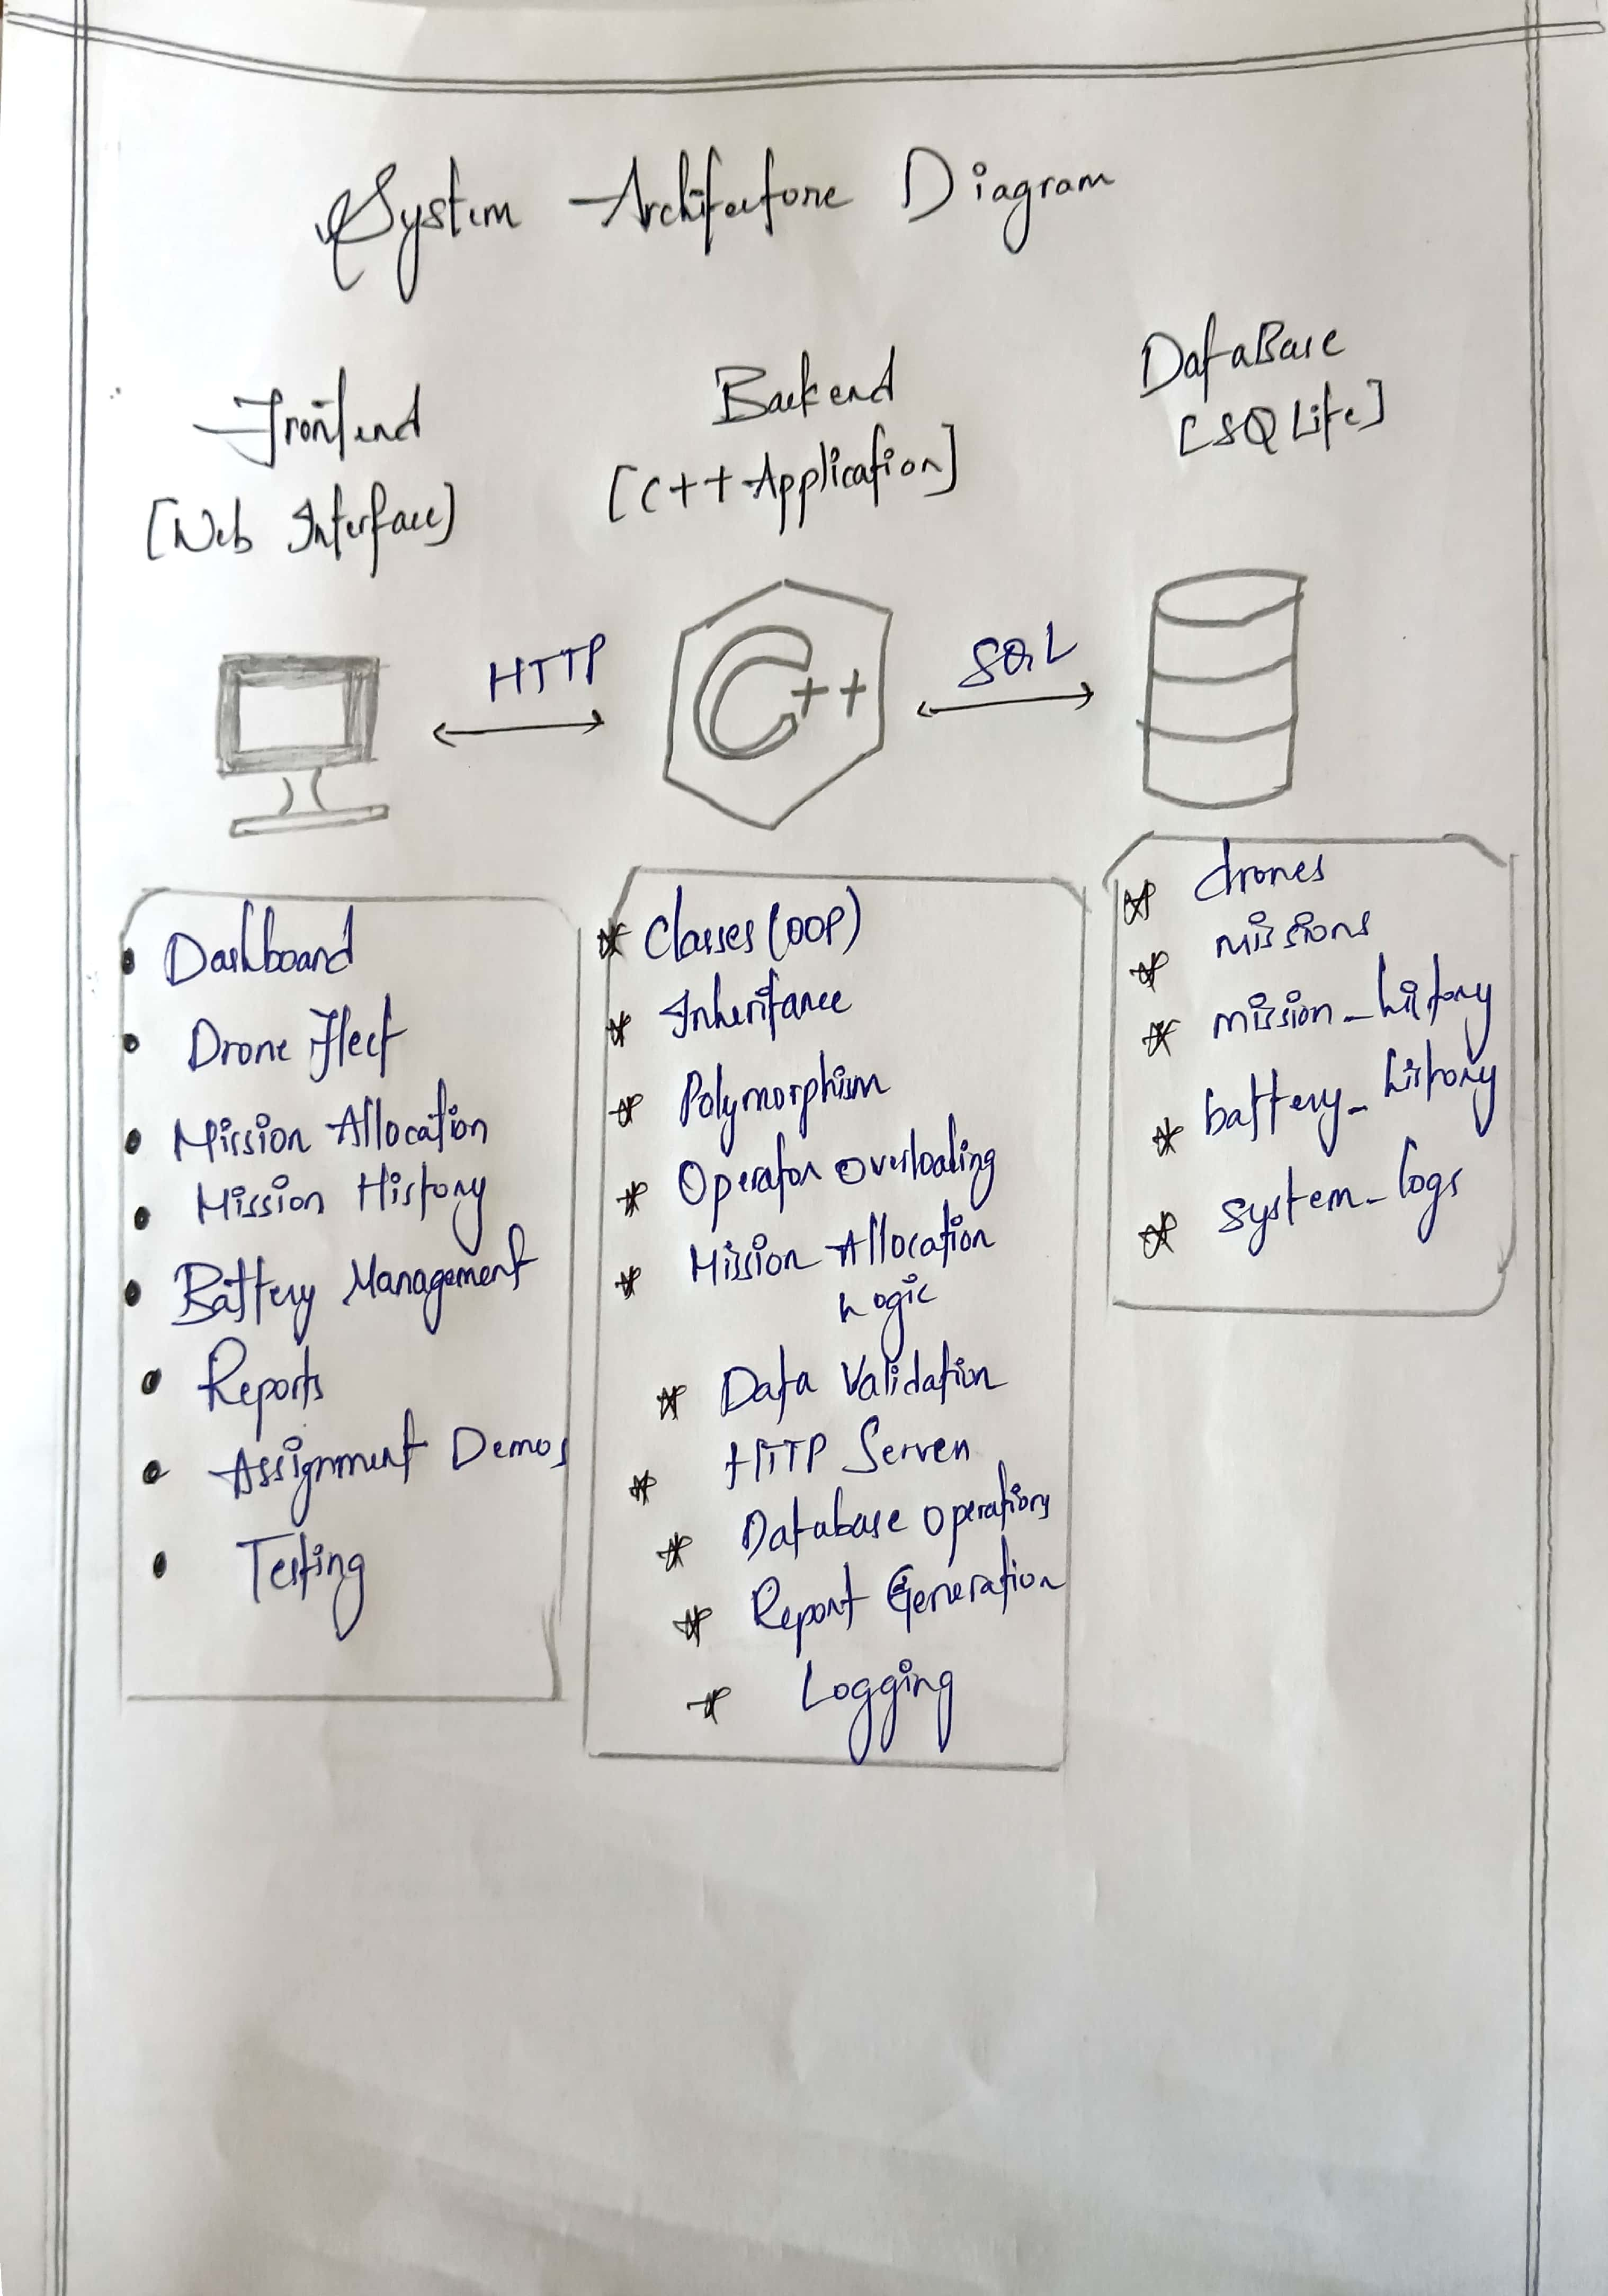 System Architecture Diagram
Frontend
[Web Interface]
Backend
[C++ Application]
DataBase
[SQLite]
HTTP
C++
SQL
Dashboard
Drone Fleet
Mission Allocation
Mission History
Battery Management
Reports
Assignment Demos
Testing
Classes (OOP)
Inheritance
Polymorphism
Operator overloading
Mission Allocation
Logic
Data Validation
HTTP Server
Database operations
Report Generation
Logging
drones
missions
mission_history
battery_history
system_logs